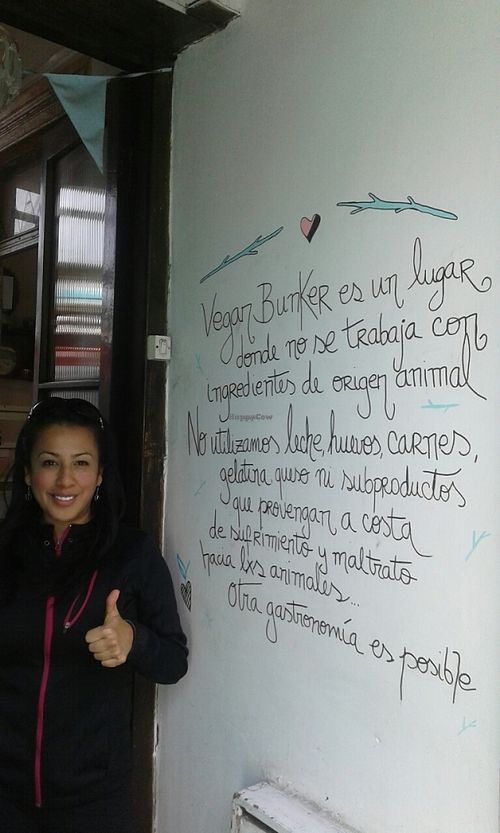 Vegan Bunker es un lugar
donde no se trabaja con
ingredientes de origen animal
HappyCow
No utilizamos leche, huevos, carnes,
gelatina queso ni subproductos
que provengan a costa
de sufrimiento y maltrato
hacia lxs animales...
Otra gastronomía es posible